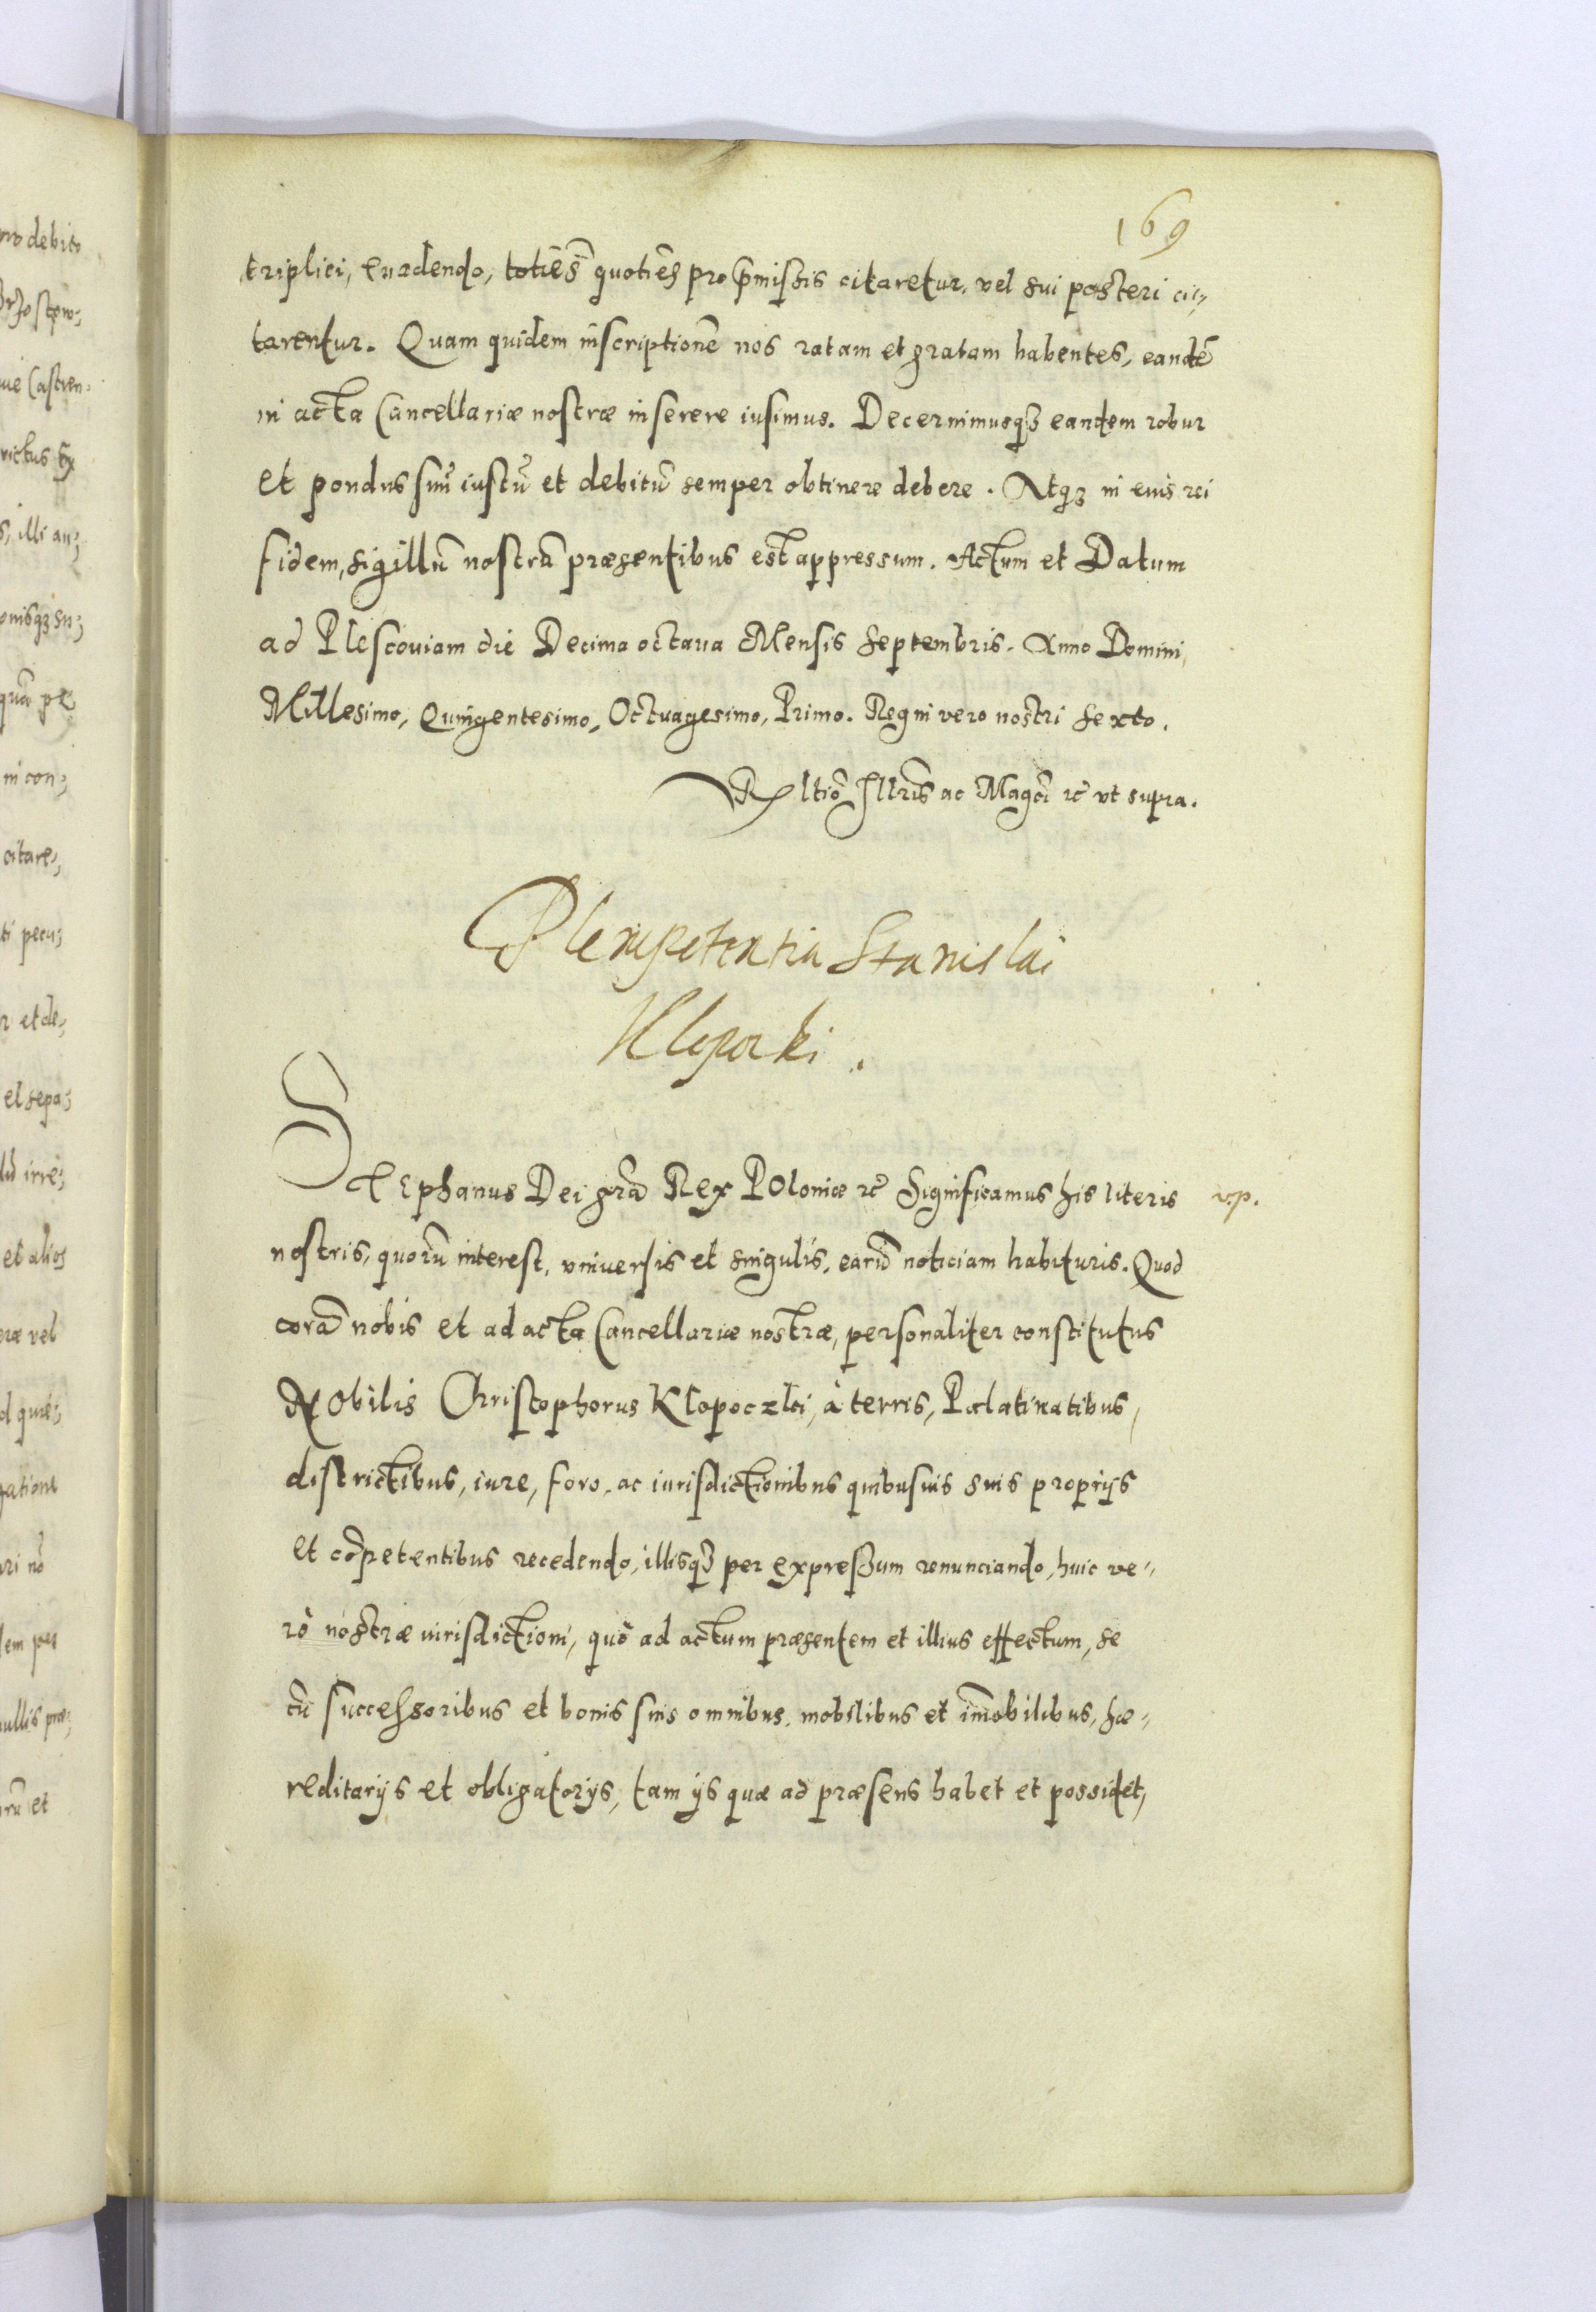 169
triplici, euadendo, totiēs quotiēs pro p̄missis citaretur, vel sui posteri ci„
tarentur. Quam quidem inscriptionē nos ratam et gratam habentes, eandē
in acta Cancellariæ nostræ inserere iusimus. Decernimusq3 eandem robur
et pondus suū iustū et debitū semper obtinere debere. Atq3 in eius rei
fidem, sigillū nostrū præsentibus est appressum. Actum et Datum
ad Plescoviam die Decima octaua Mensis Septembris. Anno Domini,
Millesimo, Quingentesimo, Octuagesimo, Primo. Regni vero nostri sexto.
Rltio Illrīs ac Magci rc vt supra.
Plenipotentia Stanislai
Klopocki.
Stephanus Dei grā Rex Poloniæ rc Significamus his literis
v.p.
nostris, quorū interest, vniuersis et singulis, earū noticiam habituris. Quod
corā nobis et ad acta Cancellariæ nostræ, personaliter constitutus
Nobilis Christophorus Klopoczki, à terris, Palatinatibus,
districtibus, iure, foro, ac iurisdictionibus quibusuis suis proprijs
et cōpetentibus recedendo, illisq3 per expreßum renunciando, huic ve„
rò nostræ iurisdictioni, quò ad actum præsentem et illius effectum, se
cū successoribus et bonis suis omnibus, mobilibus et im̄obilibus, hæ„
reditarijs et obligatorijs, tam ijs quæ ad præsens habet et possidet,